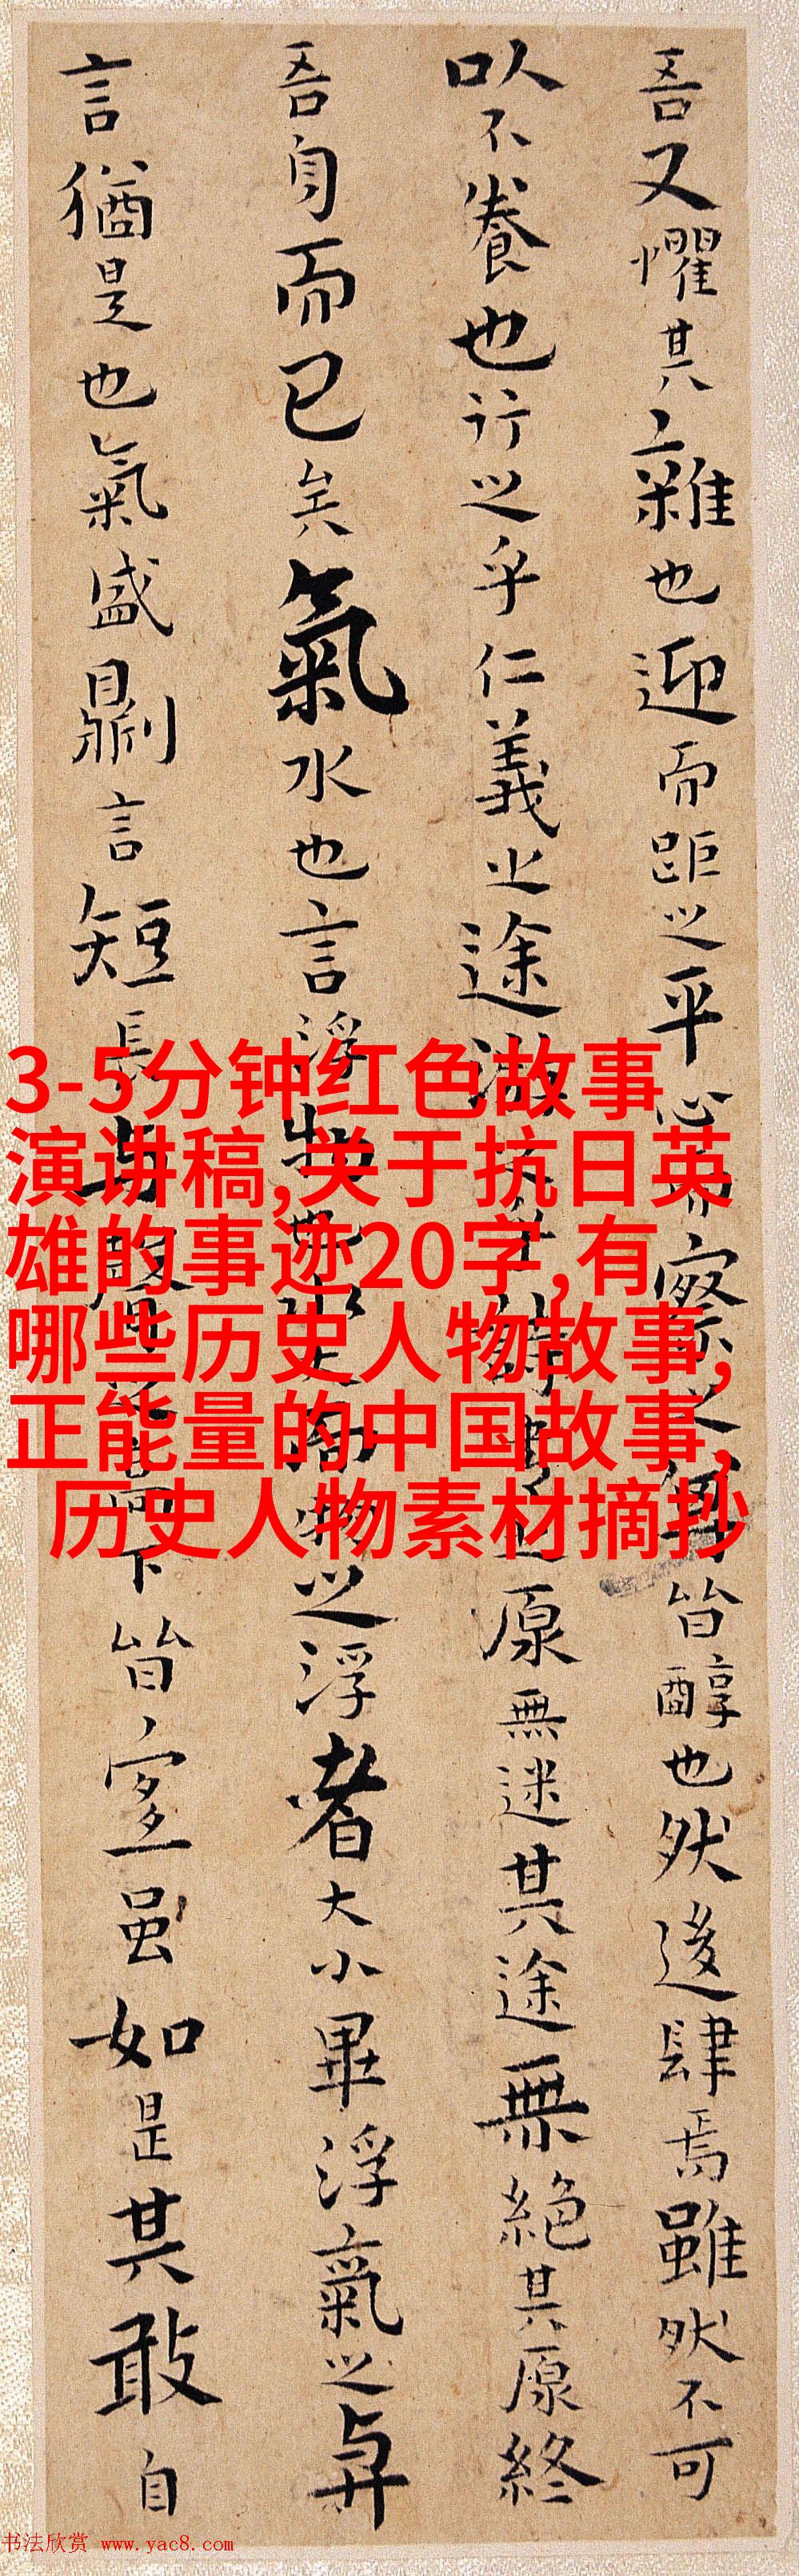 吾又懼其雜也迎而距之平心而察之其皆醇也然後肆焉雖然不可
以不養也行之乎仁義之途游之乎詩書之原無迷其途無絕其原終
吾身而已矣氣水也言浮物也水大而物之浮者大小畢浮氣之與
言猶是也氣盛則言短長与聲之高下皆宜虽如是其敢自
3-5分钟红色故事
演讲稿,关于抗日英
雄的事迹20字,有
哪些历史人物故事,
正能量的中国故事,
历史人物素材摘抄
书法欣赏 www.yac8.com